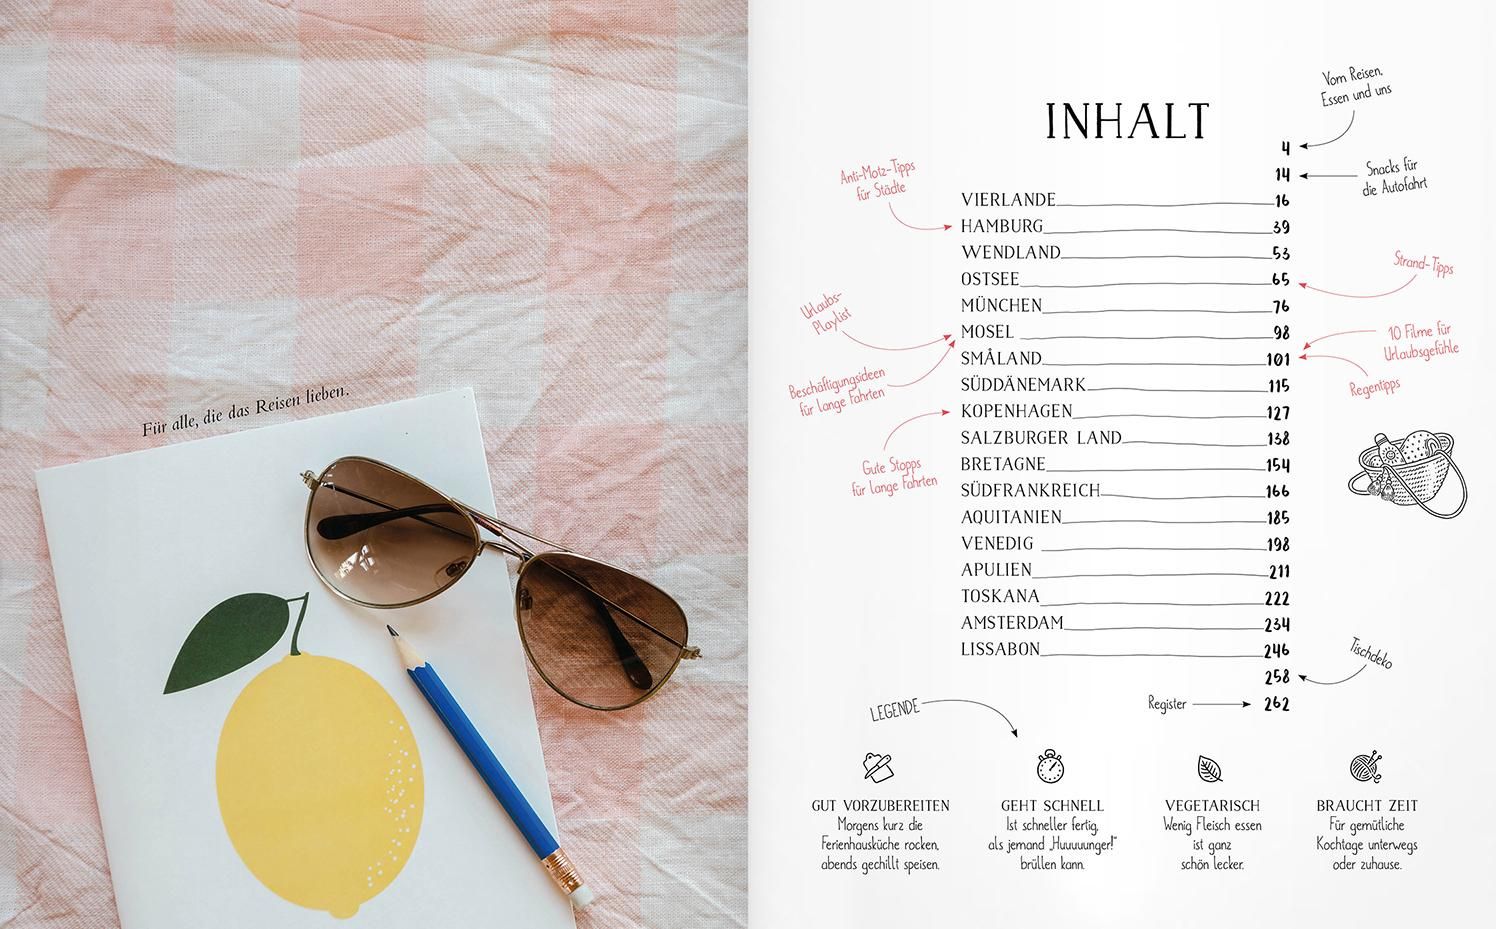 Für alle, die das Reisen lieben.
INHALT
Vom Reisen,
Essen und uns
4
14
Snacks für
die Autofahrt
Anti-Motz-Tipps
für Städte
VIERLANDE 16
HAMBURG 39
WENDLAND 53
OSTSEE 65
Strand-Tipps
MÜNCHEN 76
Urlaubs-
Playlist
MOSEL 98
10 Filme für
Urlaubsgefühle
SMÅLAND 101
Regentipps
Beschäftigungsideen
für lange Fahrten
SÜDDÄNEMARK 115
KOPENHAGEN 127
SALZBURGER LAND 138
Gute Stopps
für lange Fahrten
BRETAGNE 154
SÜDFRANKREICH 166
AQUITANIEN 185
VENEDIG 198
APULIEN 211
TOSKANA 222
AMSTERDAM 234
LISSABON 246
258
Tischdeko
Register 262
LEGENDE
GUT VORZUBEREITEN
Morgens kurz die
Ferienhausküche rocken,
abends gechillt speisen.
GEHT SCHNELL
Ist schneller fertig,
als jemand „Huuuuunger!“
brüllen kann.
VEGETARISCH
Wenig Fleisch essen
ist ganz
schön lecker.
BRAUCHT ZEIT
Für gemütliche
Kochtage unterwegs
oder zuhause.